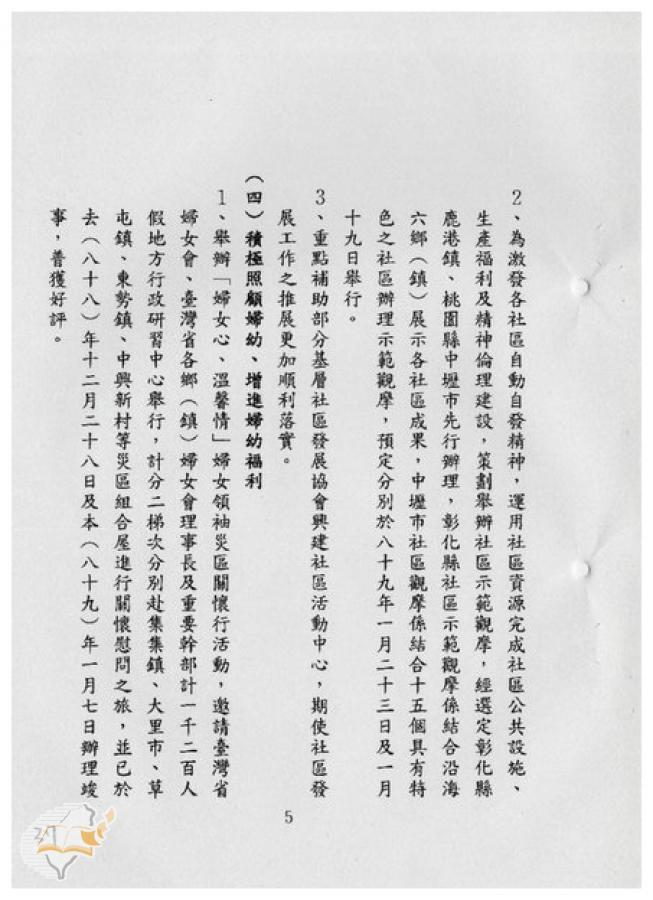 2、為激發各社區自動自發精神，運用社區資源完成社區公共設施、
生產福利及精神倫理建設，策劃舉辦社區示範觀摩，經選定彰化縣
鹿港鎮、桃園縣中壢市先行辦理，彰化縣社區示範觀摩係結合沿海
六鄉（鎮）展示各社區成果，中壢市社區觀摩係結合十五個具有特
色之社區辦理示範觀摩，預定分別於八十九年一月二十三日及一月
十九日舉行。
3、重點補助部分基層社區發展協會興建社區活動中心，期使社區發
展工作之推展更加順利落實。
（四）積極照顧婦幼、增進婦幼福利
1、舉辦「婦女心、溫馨情」婦女領袖災區關懷行活動，邀請臺灣省
婦女會、臺灣省各鄉（鎮）婦女會理事長及重要幹部計一千二百人
假地方行政研習中心舉行，計分二梯次分別赴集集鎮、大里市、草
屯鎮、東勢鎮、中興新村等災區組合屋進行關懷慰問之旅，並已於
去（八十八）年十二月二十八日及本（八十九）年一月七日辦理竣
事，普獲好評。
5